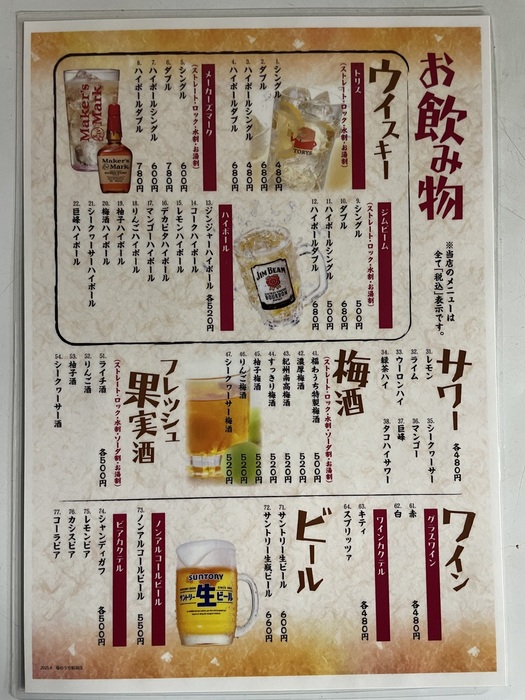 お飲み物
※当店のメニューは
全て「税込」表示です。
ウイスキー
トリス
(ストレート・ロック・水割・お湯割)
1. シングル 480円
2. ダブル 680円
3. ハイボールシングル 480円
4. ハイボールダブル 680円
TORYS
メーカーズマーク
(ストレート・ロック・水割・お湯割)
5. シングル 600円
6. ダブル 780円
7. ハイボールシングル 600円
8. ハイボールダブル 780円
Maker's Mark
Maker's Mark
ジムビーム
(ストレート・ロック・水割・お湯割)
9. シングル 500円
10. ダブル 680円
11. ハイボールシングル 500円
12. ハイボールダブル 680円
JIM BEAM
ハイボール
13. ジンジャーハイボール 各520円
14. コークハイボール
15. レモンハイボール
16. デカビタハイボール
17. マンゴーハイボール
18. りんごハイボール
19. 柚子ハイボール
20. 梅酒ハイボール
21. シークヮーサーハイボール
22. 巨峰ハイボール
サワー 各480円
31. レモン
32. ライム
33. ウーロンハイ
34. 緑茶ハイ
35. シークヮーサー
36. マンゴー
37. 巨峰
38. タコハイサワー
梅酒
(ストレート・ロック・水割・ソーダ割・お湯割)
41. 福わうち特製梅酒 500円
42. 濃厚梅酒 520円
43. 紀州南高梅酒 520円
44. すっきり梅酒 520円
45. 柚子梅酒 520円
46. りんご梅酒 520円
47. シークヮーサー梅酒 520円
フレッシュ
果実酒
(ストレート・ロック・水割・ソーダ割・お湯割)
51. ライチ酒 各500円
52. りんご酒
53. 柚子酒
54. シークヮーサー酒
ワイン
グラスワイン
61. 赤 各480円
62. 白
ワインカクテル
63. キティ 各480円
64. スプリッツァ
ビール
71. サントリー生ビール 600円
72. サントリー生瓶ビール 660円
SUNTORY
サントリー生ビール
ノンアルコールビール
73. ノンアルコールビール 550円
ビアカクテル
74. シャンディガフ 各500円
75. レモンビア
76. カシスビア
77. コーラビア